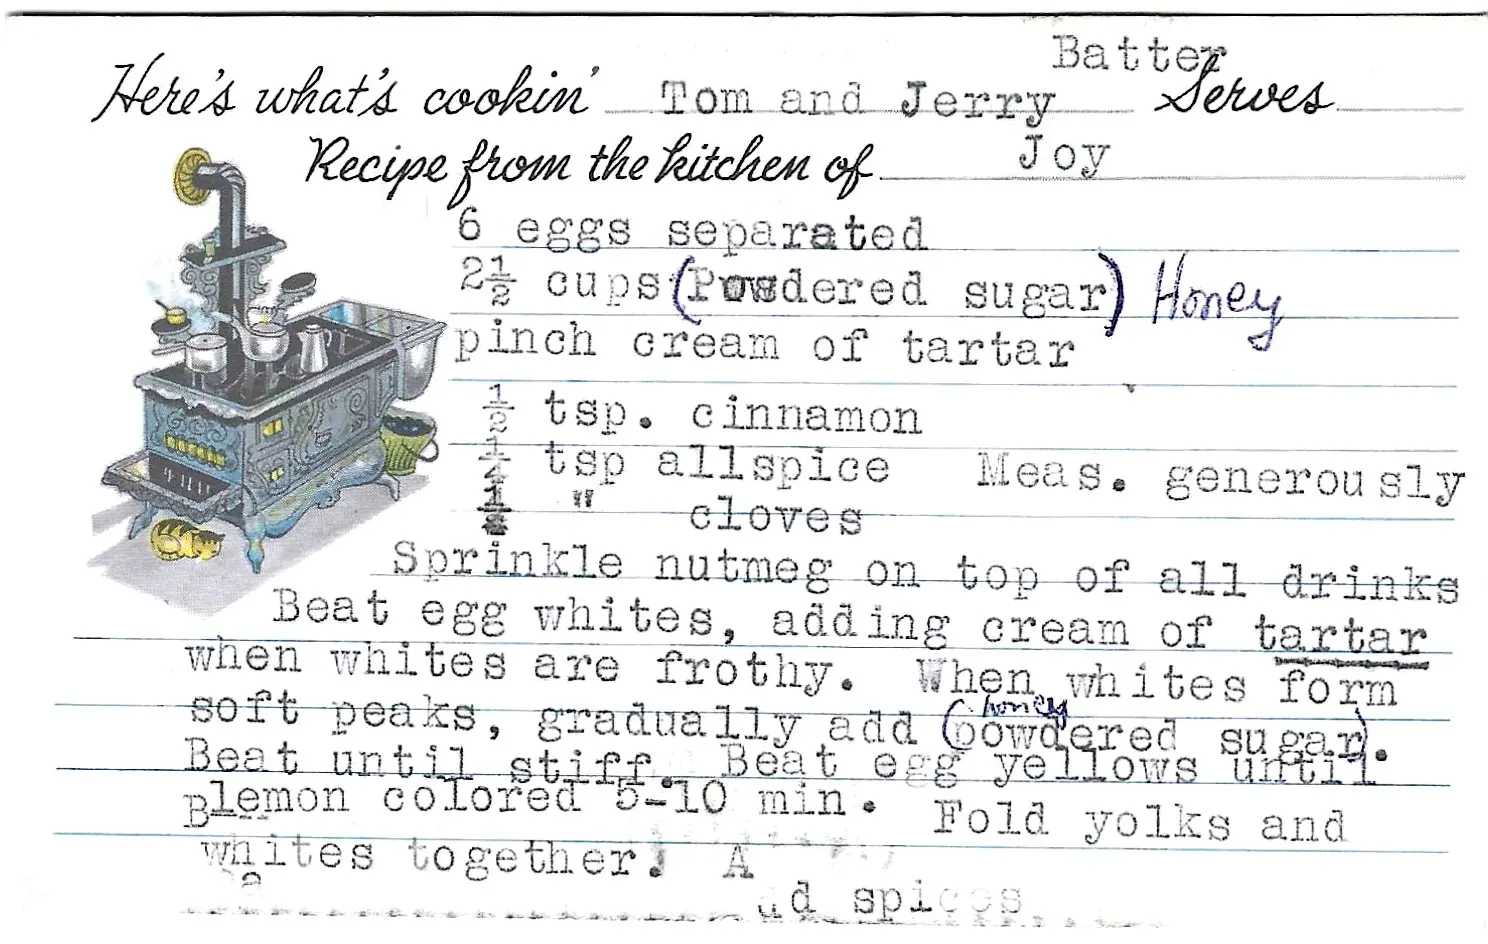 Batter
Here's what's cookin' Tom and Jerry Serves
Recipe from the kitchen of Joy
6 eggs separated
2½ cups (Powdered sugar) Honey
pinch cream of tartar
½ tsp. cinnamon
¼ tsp allspice Meas. generously
" cloves
Sprinkle nutmeg on top of all drinks
Beat egg whites, adding cream of tartar
when whites are frothy. When whites form
honey
soft peaks, gradually add (powdered sugar).
Beat until stiff. Beat egg yellows until
lemon colored 5-10 min. Fold yolks and
whites together. A
dd spices